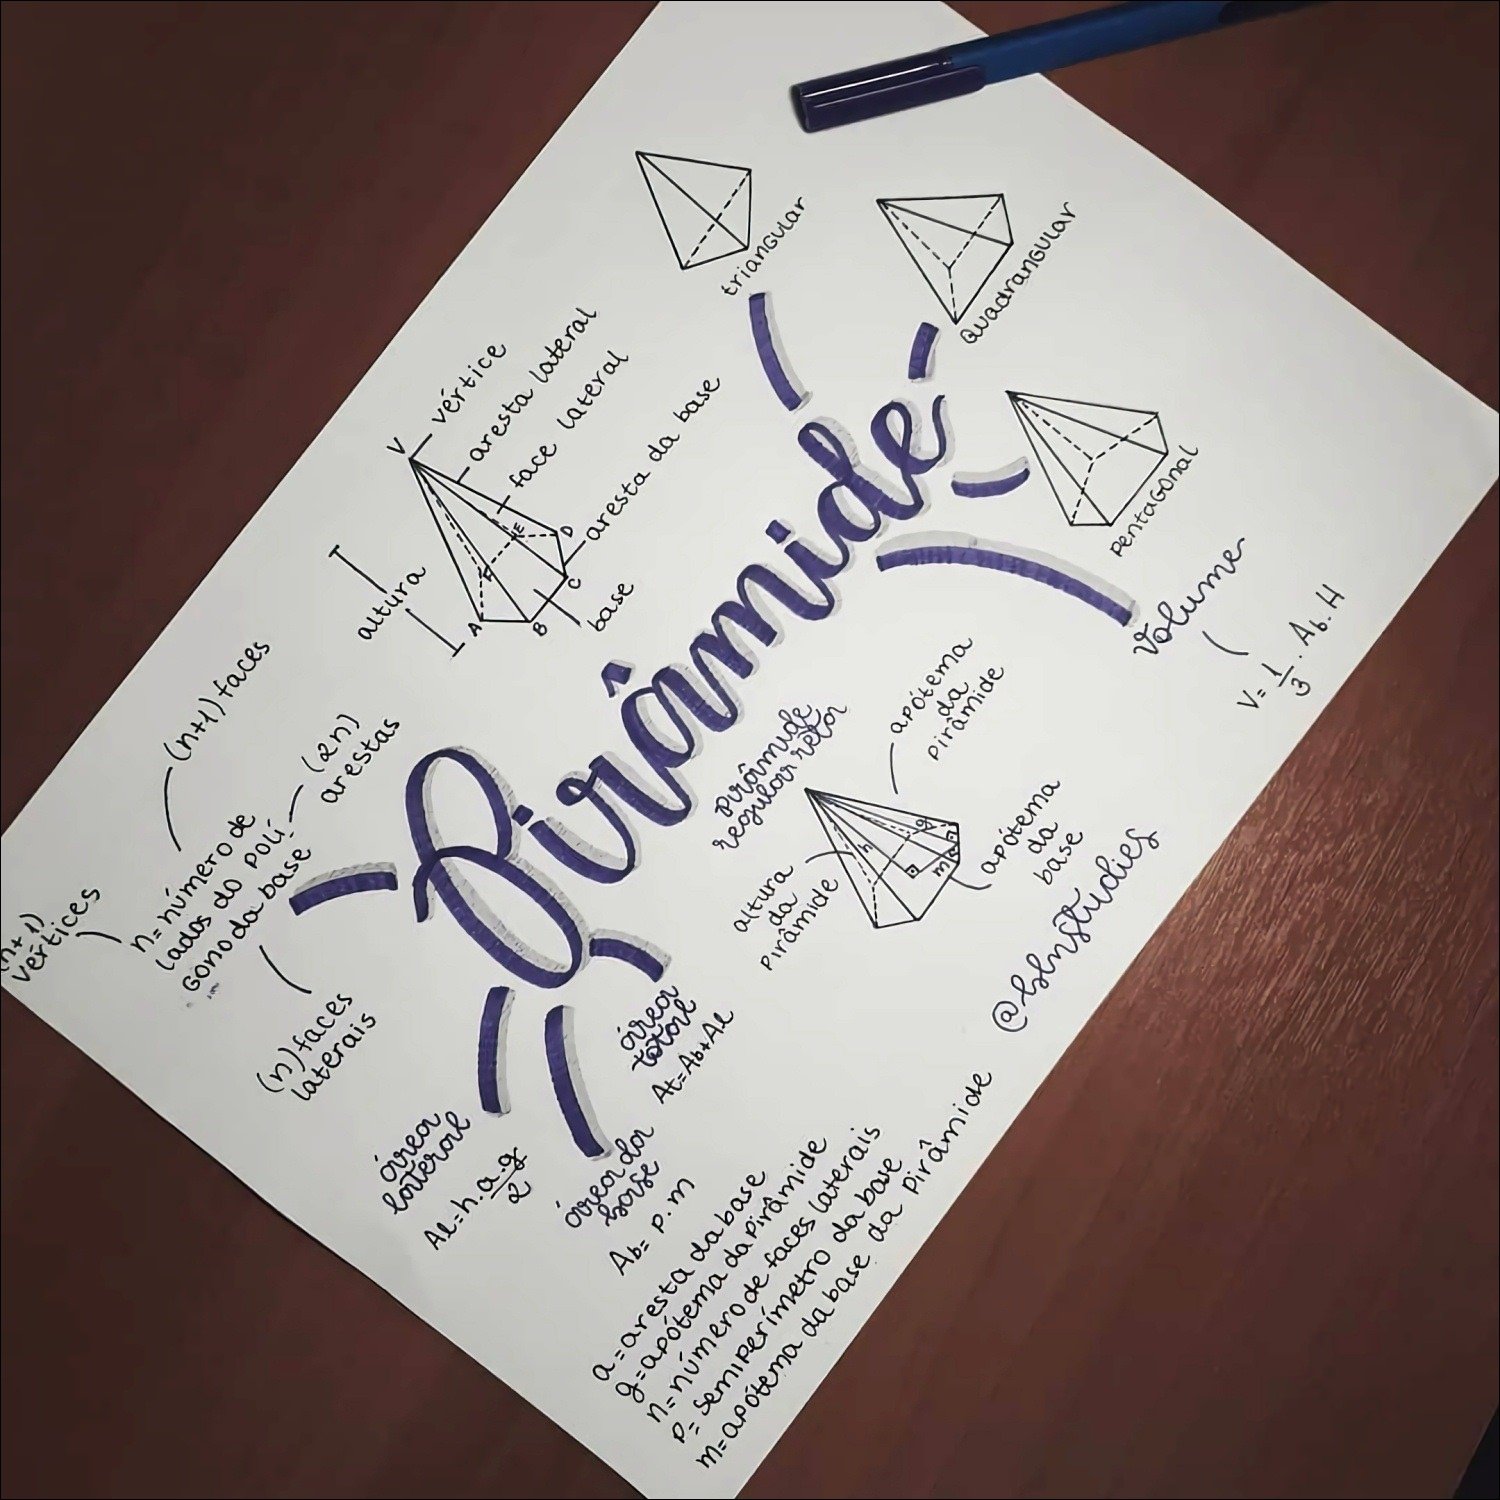 Pirâmide
triangular
Quadrangular
Pentagonal
V
vértice
aresta lateral
face lateral
aresta da base
base
altura
A
B
C
D
E
F
(n+1) faces
(2n)
arestas
n= número de
lados do polí
gono da base
(n+1)
vértices
(n) faces
laterais
área
lateral
Al=n.a.g
2
área da
base
Ab= p.m
área
total
At=Ab+Al
pirâmide
regular reta
apótema
da
pirâmide
altura
da
pirâmide
apótema
da
base
h
g
m
Volume
V= 1 . Ab.H
3
a=aresta da base
g=apótema da pirâmide
n=número de faces laterais
p= semiperímetro da base
m=apótema da base da pirâmide